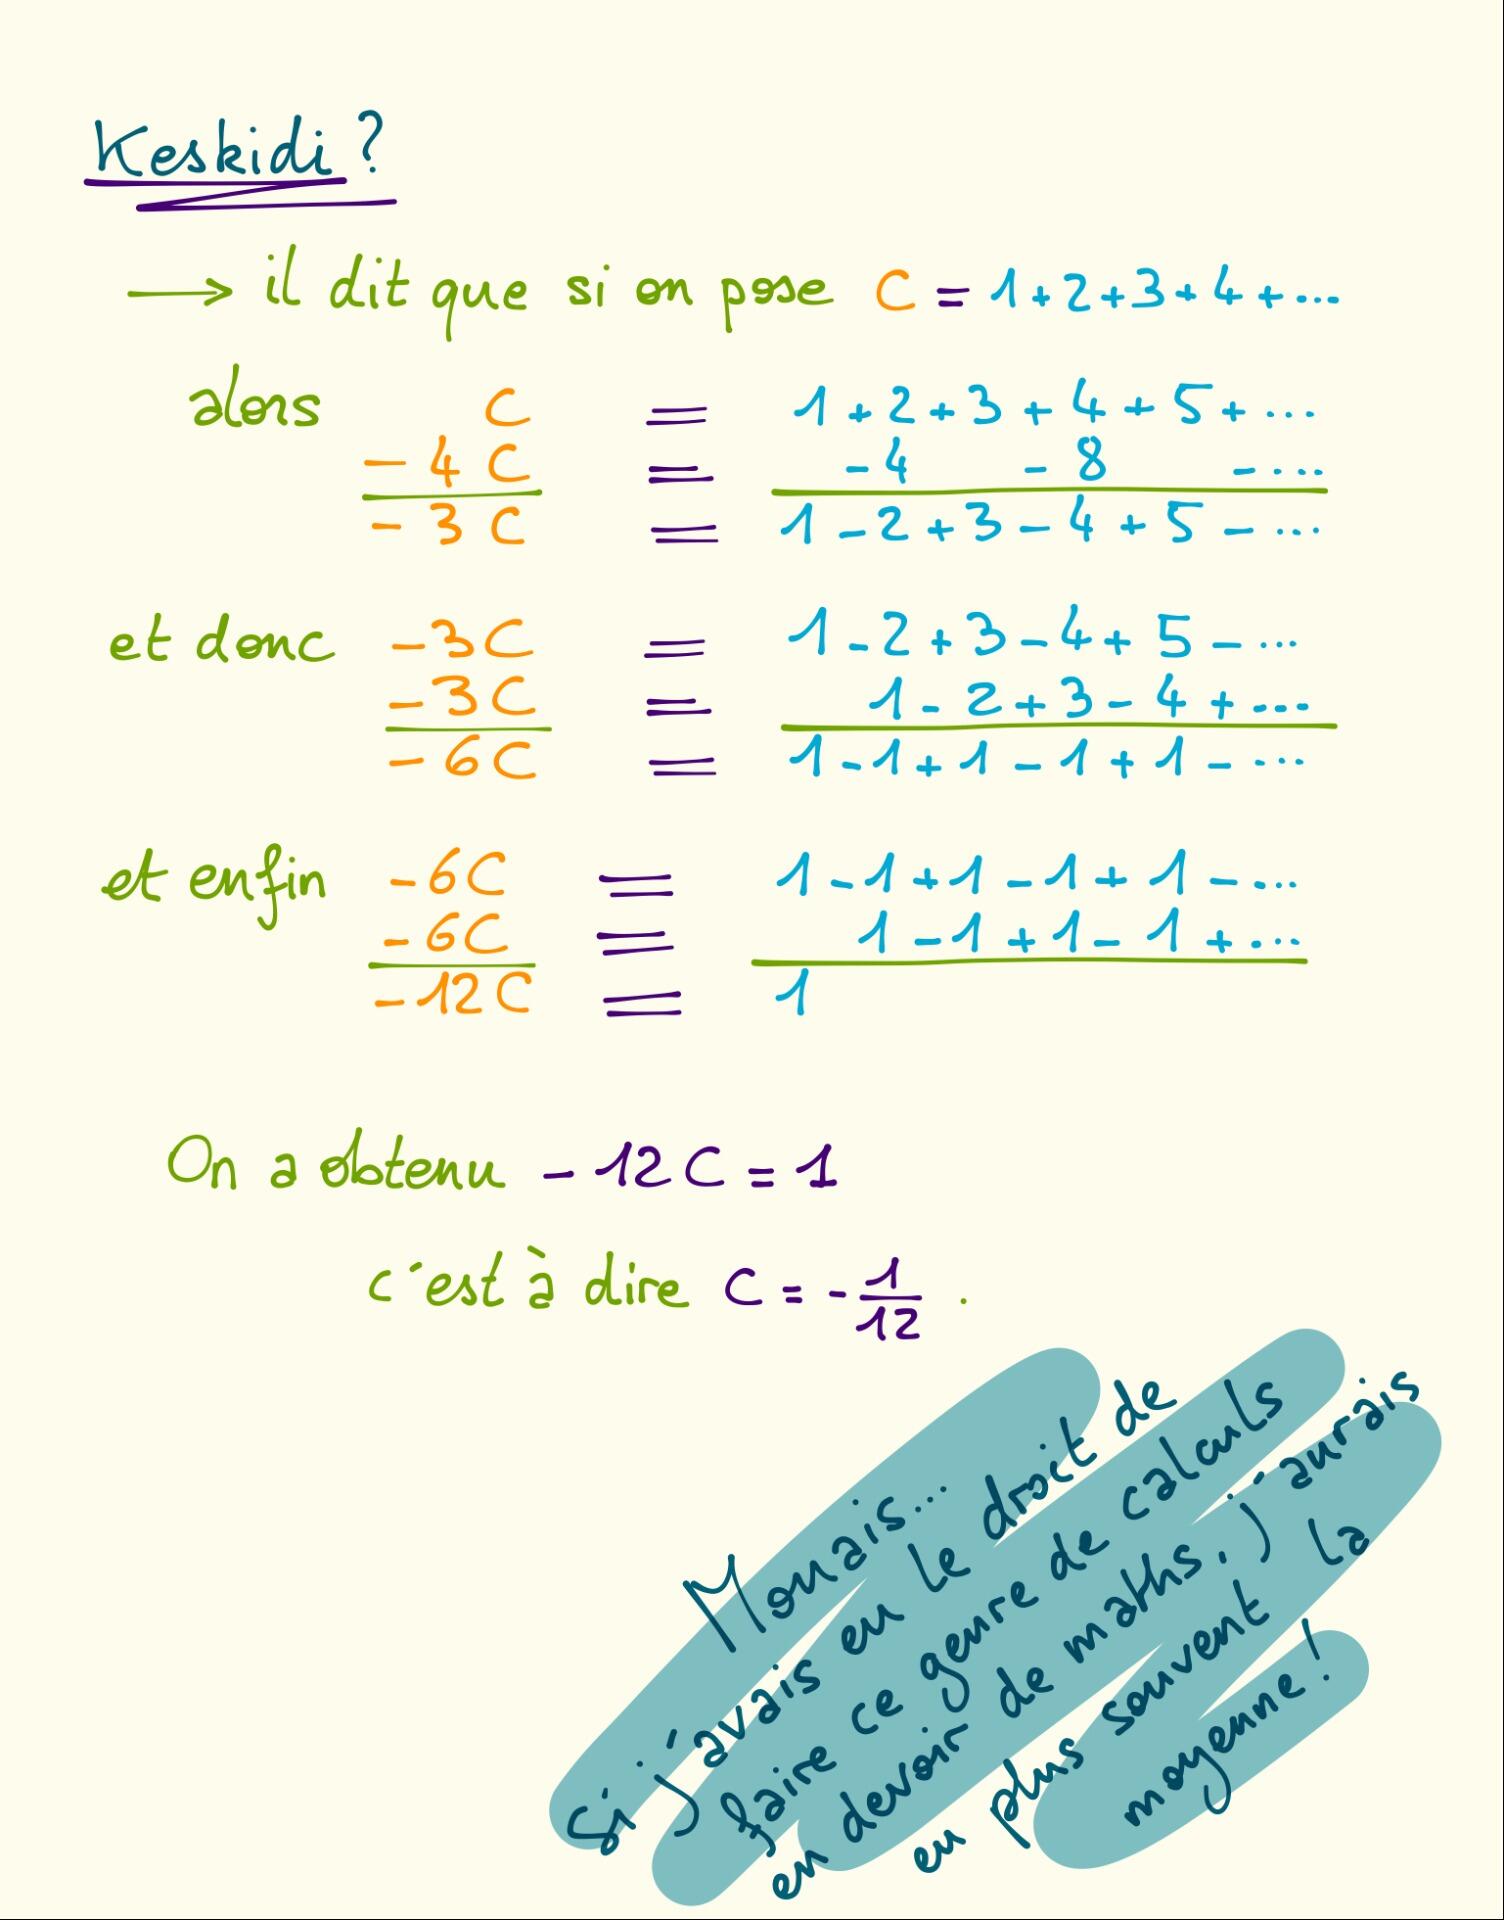 Keskidi ?
→ il dit que si on pose C = 1+2+3+4+...
alors C = 1+2+3+4+5+...
-4C = -4 -8 -....
-3C = 1-2+3-4+5-...
et donc -3C = 1-2+3-4+5-...
-3C = 1-2+3-4+...
-6C = 1-1+1-1+1-...
et enfin -6C = 1-1+1-1+1-...
-6C = 1-1+1-1+...
-12C = 1
On a obtenu -12C = 1
c'est à dire C = -1/12 .
Mouais...
Si j'avais eu le droit de
faire ce genre de calculs
en devoir de maths, j'aurais
eu plus souvent la
moyenne !